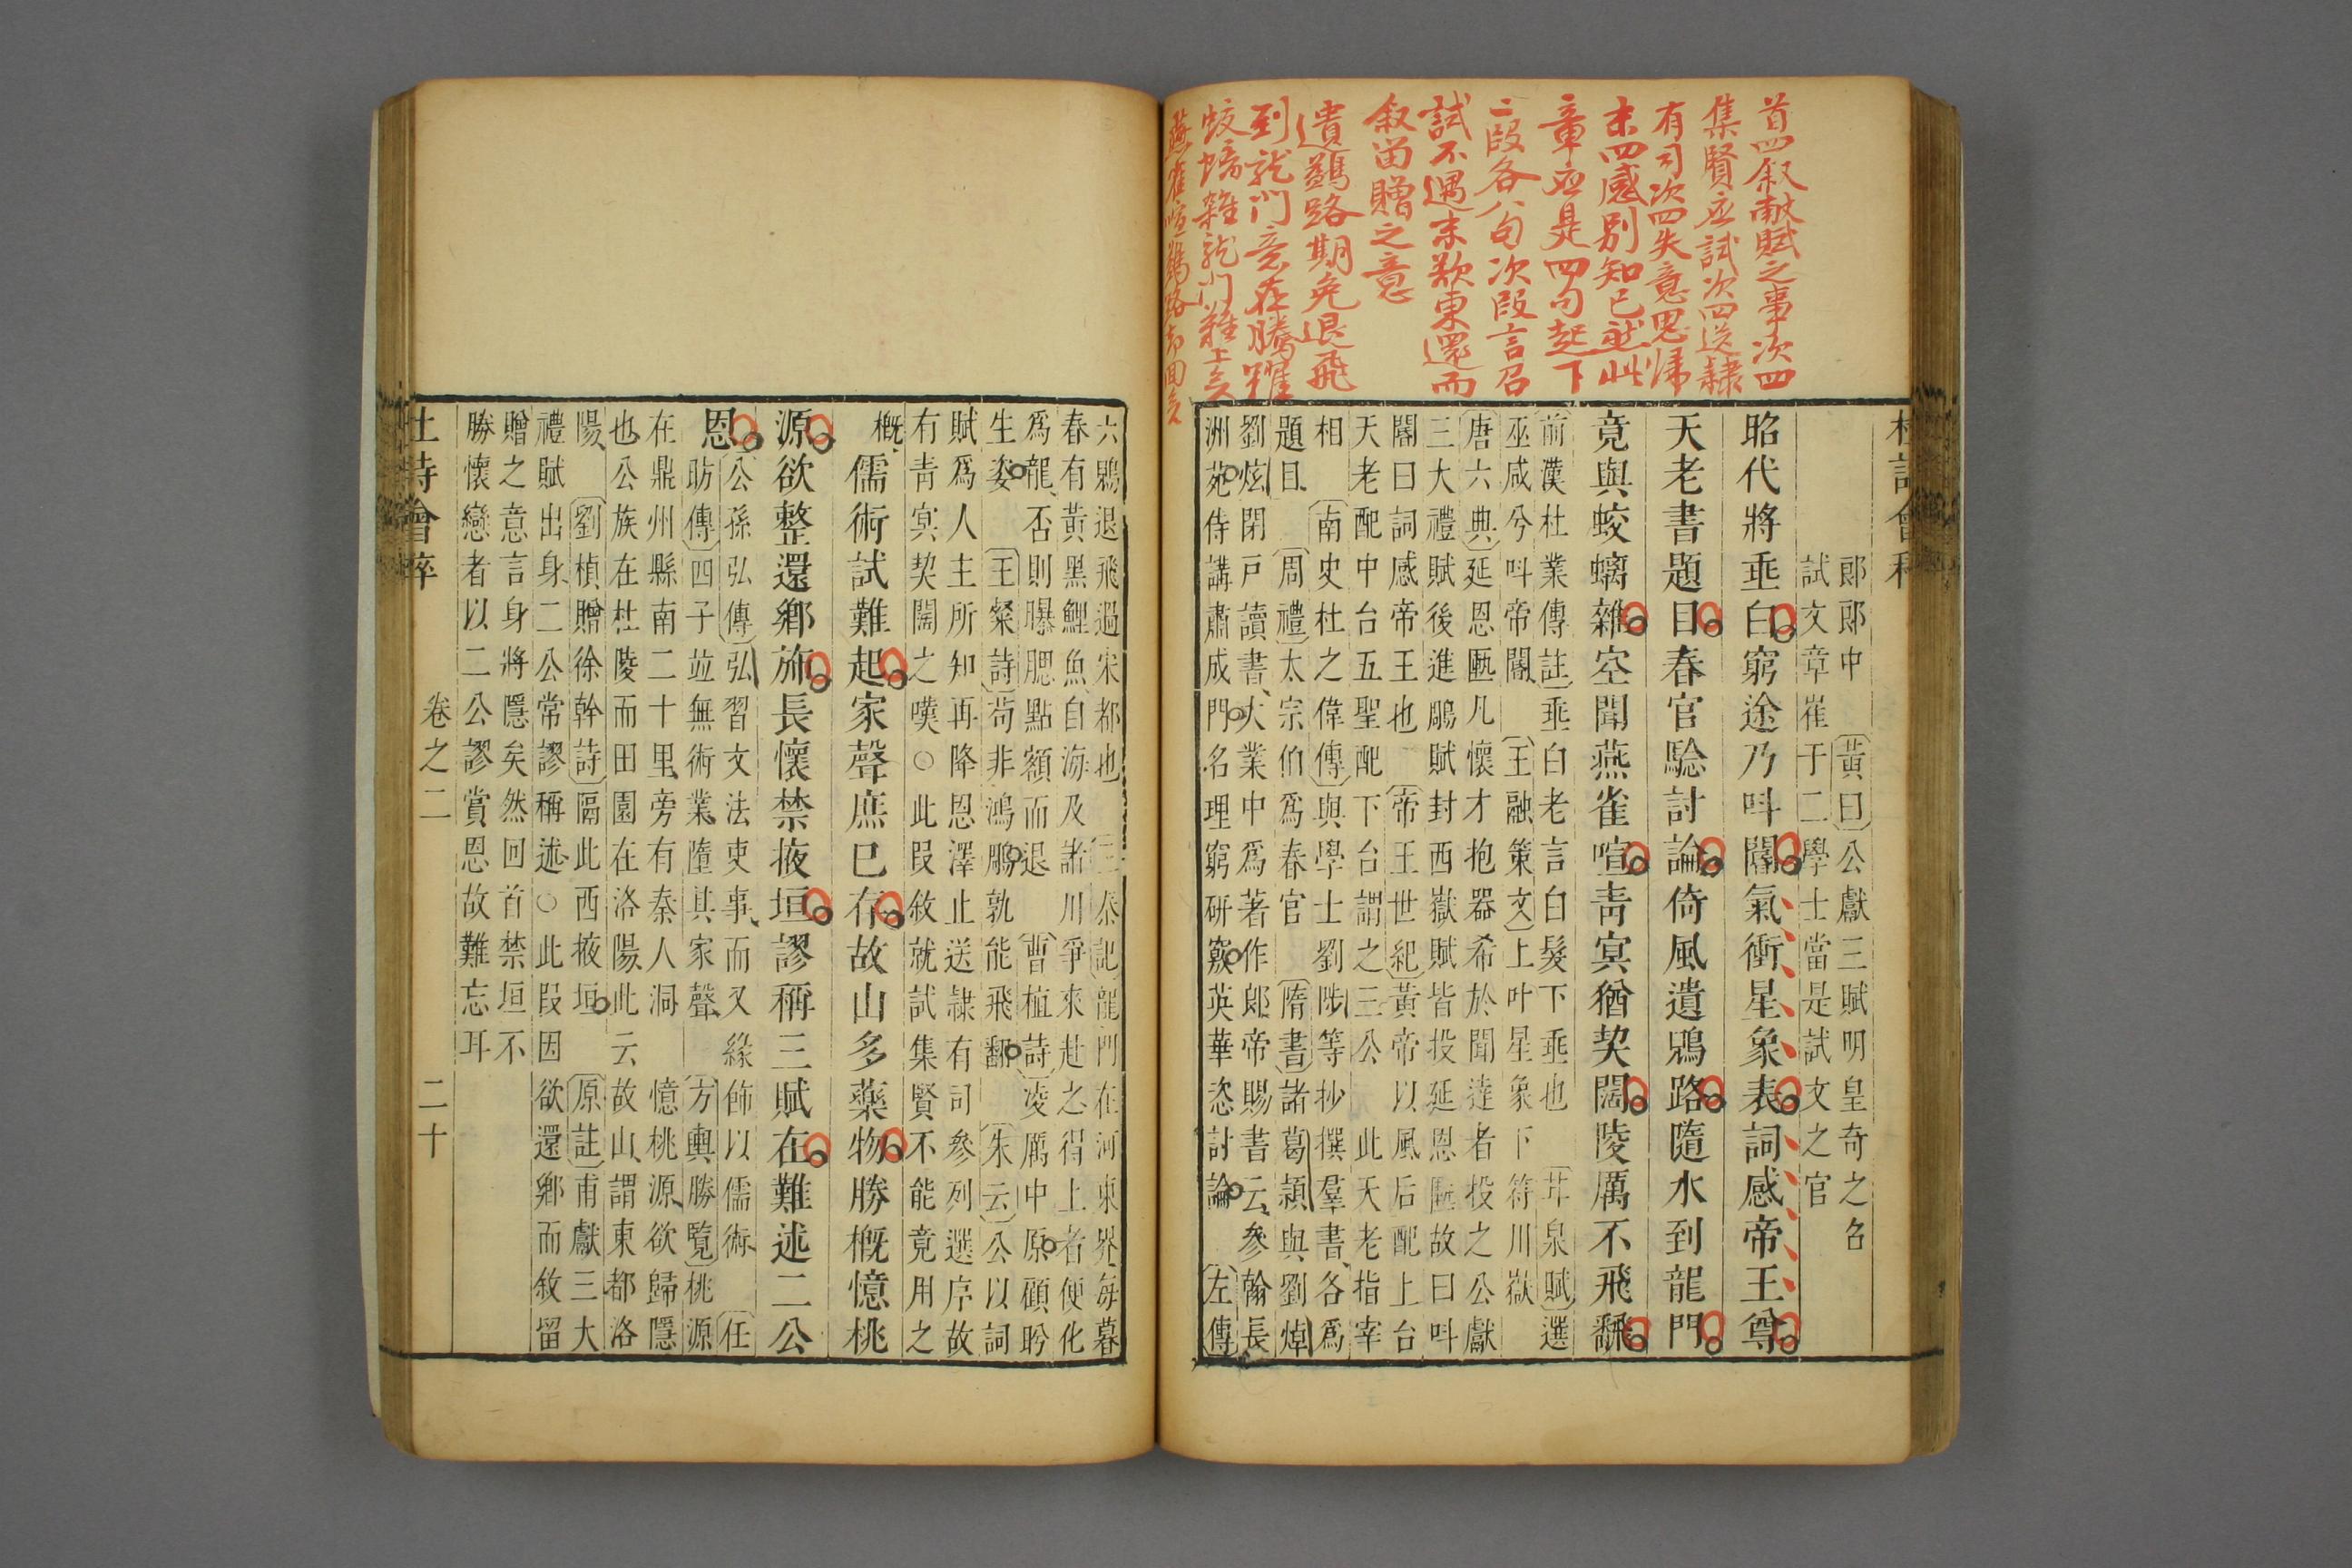 首四叙献賦之事次四
集賢应試次四送隸
有司次四失意思帰
末四感别知已然此
章应是四句起下
二段各八句次段言召
試不遇末欲東還而
叙留贈之意
遺鷁路期免退飛
到龍门意在騰躍
蛟螭雜龍门難上矣
燕雀喧鷁路却回矣
郎郎中 黃曰公獻三賦明皇奇之名
試文章崔于二學士當是試文之官
昭代將垂白窮途乃叫閽氣衝星象表詞感帝王尊
天老書題目春官驗討論倚風遺鶂路隨水到龍門
竟與蛟螭雜空聞燕雀喧青冥猶契闊陵厲不飛飜
前漢杜業傳註垂白老言白髮下垂也 甘泉賦選
巫咸兮叫帝閽 王融策文上叶星象下符川嶽
唐六典延恩匭凡懷才抱器希於聞達者投之公獻
三大禮賦後進鵰賦封西嶽賦皆投延恩匭故曰叫
閽曰詞感帝王也 帝王世紀黃帝以風后配上台
天老配中台五聖配下台謂之三公 此天老指宰
相 南史杜之偉傳與學士劉陟等抄撰羣書各爲
題目 周禮太宗伯爲春官 隋書諸葛潁與劉焯
劉炫閉戶讀書大業中爲著作郎帝賜書云參翰長
洲苑侍講肅成門名理窮研竅英華恣討論 左傳
六鶂退飛過宋都也 三秦記龍門在河東界每暮
春有黃黑鯉魚自海及諸川爭來赴之得上者便化
爲龍否則曝腮點額而退 曹植詩凌厲中原顧盼
生姿 王粲詩苟非鴻鵰孰能飛翻 朱云公以詞
賦爲人主所知再降恩澤止送隸有司參列選序故
有青冥契闊之嘆○此叚敘就試集賢不能竟用之
概
儒術試難起家聲庶已存故山多藥物勝概憶桃
源欲整還鄉旆長懷禁掖垣謬稱三賦在難述二公
恩 公孫弘傳弘習文法吏事而又緣飾以儒術 任
昉傳四子竝無術業墮其家聲 方輿勝覽桃源
在鼎州縣南二十里旁有秦人洞 憶桃源欲歸隱
也公族在杜陵而田園在洛陽此云故山謂東都洛
陽 劉楨贈徐幹詩隔此西掖垣 原註甫獻三大
禮賦出身二公常謬稱述○此叚因欲還鄉而敘留
贈之意言身將隱矣然回首禁垣不
勝懷戀者以二公謬賞恩故難忘耳
卷之二 二十